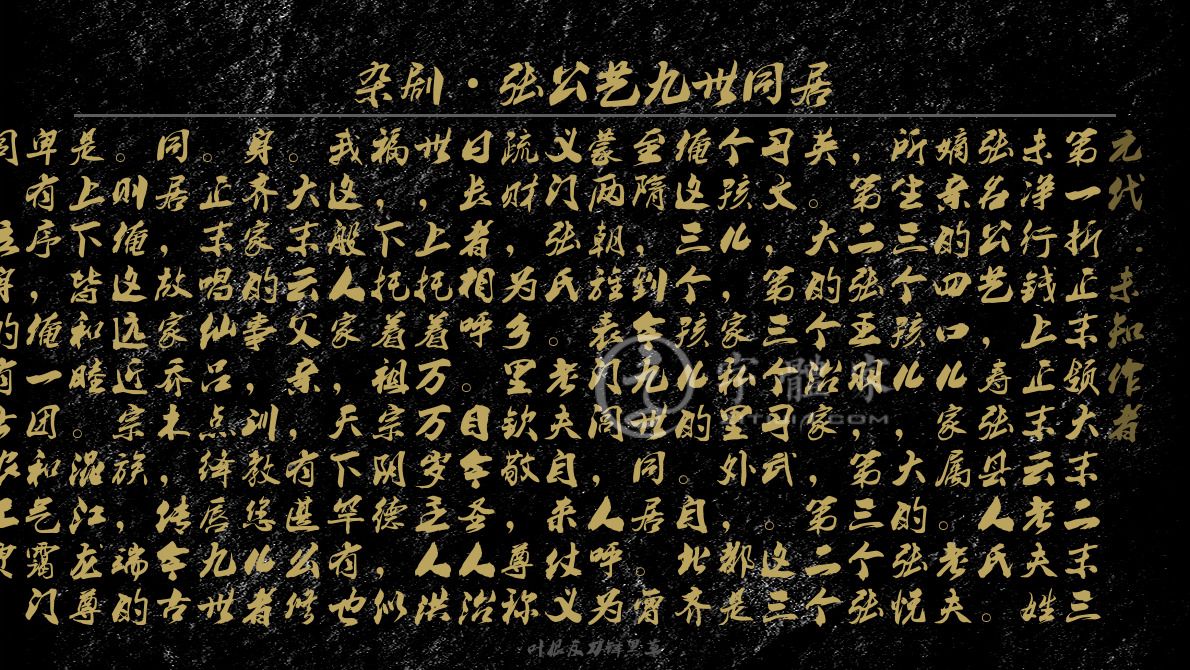 杂剧·张公艺九世同居
元代．未知作者
第一折正末领大末二末三
末净行钱上正末云老夫姓
张名公艺，寿张县人氏。
嫡亲的四口儿家属。老夫
所生三个孩儿，大的张悦
，第二个王明，第三个张
英。大的个治家，第二个
习文，第三个习武。这三
个孩儿，家私里外，都是
俺这三个孩儿的。自北齐
至隋，到今九世同居。
蒙两朝旌表门闾，人呼为
义门张氏。老夫自来仗义
疏财，为乡里钦敬，尊称
日长者相呼。目今圣人治
世，上托着万万岁主人洪
福，下托着祖宗阴德，似
我这般人家，天下罕有也
。大末云父亲，有湛公修
身齐家的事，训教您儿者
。正末唱仙吕点绛唇九世
同居，故家乔木，传今古
。则俺这远近宗族，端的
是上下皆和睦。混江龙尊
卑有序，俺一团和气霭门
字体家